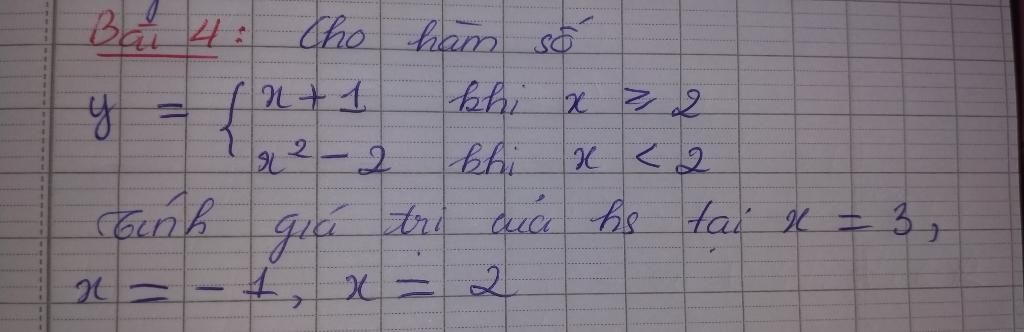 Bài 4: Cho hàm số
y = { x + 1 khi x ≥ 2
x² - 2 khi x < 2
Tính giá trị của hs tại x = 3,
x = - 1, x = 2